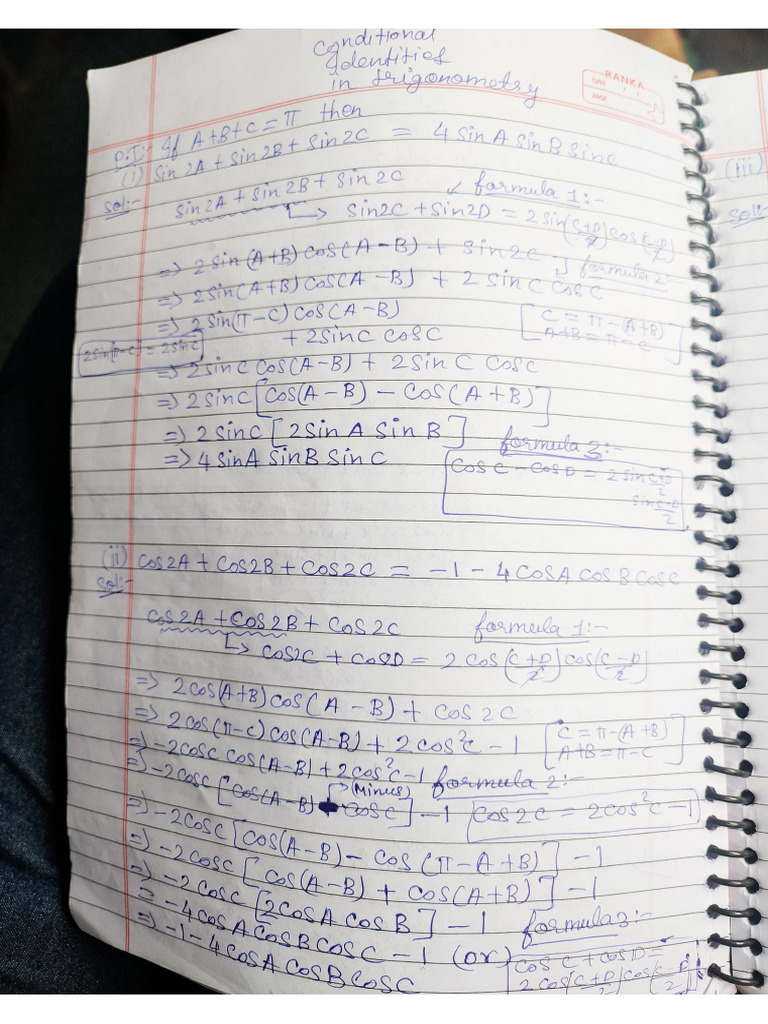 Conditional
Identities
in trigonometry
RANKA
DATE / /
PAGE
P.I:- If A+B+C = π then
(i) Sin 2A + Sin 2B + Sin 2C = 4 Sin A Sin B Sin C
Sol:- Sin 2A + Sin 2B + Sin 2C formula 1:-
Sin2C + Sin2D = 2 Sin(C+D/2) cos(C-D/2)
=> 2 Sin (A+B) cos(A-B) + Sin 2C formula 2:-
=> 2 Sin(A+B) cos(A-B) + 2 Sin C cos C
=> 2 Sin(π-C) cos(A-B) [C = π-(A+B)
+ 2 Sin C cos C A+B = π-C]
2 Sin(π-C) = 2 Sin C
=> 2 Sin C cos(A-B) + 2 Sin C cos C
=> 2 Sin C [cos(A-B) - cos(A+B)]
=> 2 Sin C [2 Sin A Sin B] formula 3:-
=> 4 Sin A Sin B Sin C
cos C - cos D = 2 Sin C+D/2
Sin C-D/2
(ii) cos 2A + cos 2B + cos 2C = -1 - 4 cos A cos B cos C
Sol:-
cos 2A + cos 2B + cos 2C formula 1:-
cos2C + cos D = 2 cos(C+D/2) cos(C-D/2)
=> 2 cos(A+B) cos(A-B) + cos 2C
=> 2 cos(π-C) cos(A-B) + 2 cos²C - 1 [C = π-(A+B)
=> -2 cos C cos(A-B) + 2 cos²C - 1 A+B = π-C]
(Minus) formula 2:-
=> -2 cos C [cos(A-B) - cos C] - 1 cos 2C = 2 cos²C - 1
=> -2 cos C [cos(A-B) - cos (π-A+B)] - 1
=> -2 cos C [cos(A-B) + cos(A+B)] - 1
=> -2 cos C [2 cos A cos B] - 1 formula 3:-
= -4 cos A cos B cos C - 1 (or) cos C + cos D =
=> -1 - 4 cos A cos B cos C 2 cos(C+D/2) cos(C-D/2)
(iii)
Sol:-